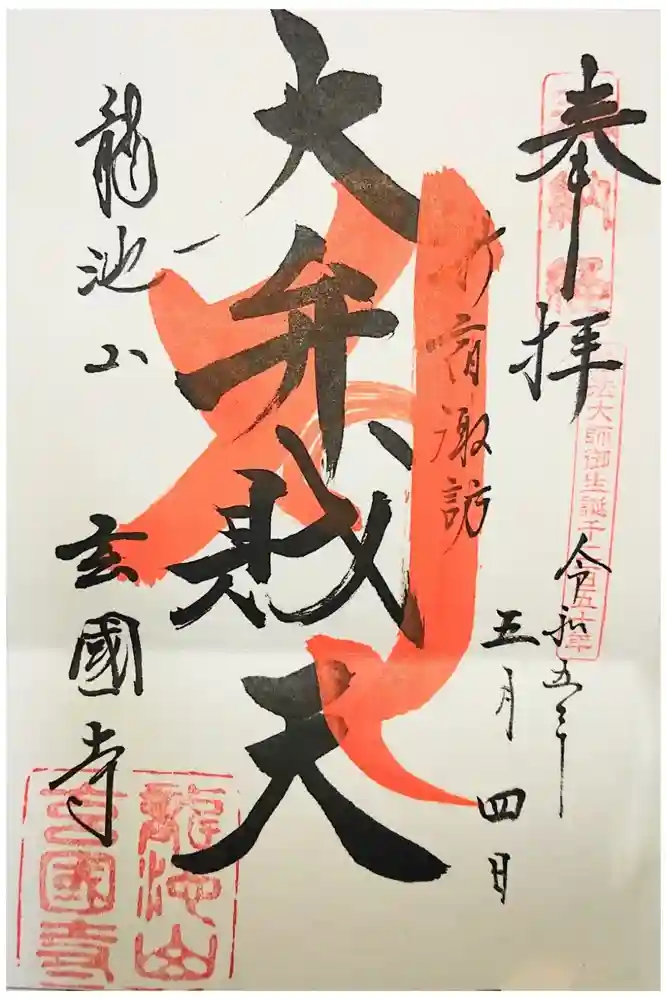 奉拝
奉納経
法大師御生誕千二百五十年
令和五年
五月四日
新宿諏訪
大弁財天
龍池山
玄國寺
龍池山
玄國寺